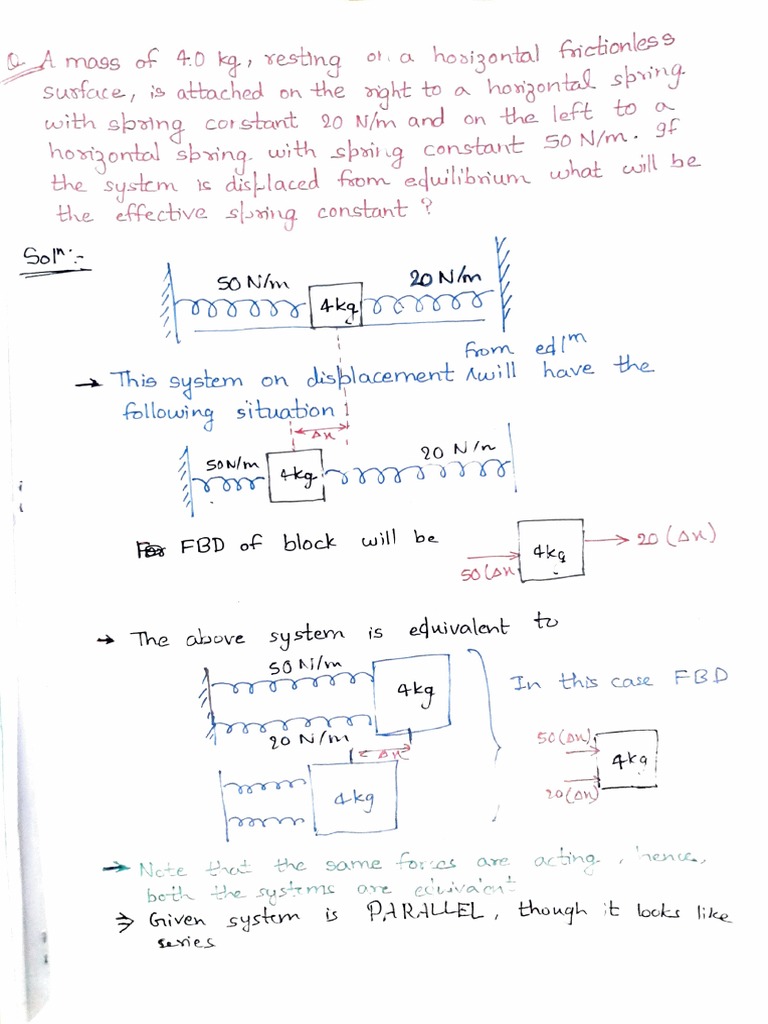 Q. A mass of 4.0 kg, resting on a horizontal frictionless
surface, is attached on the right to a horizontal spring
with spring constant 20 N/m and on the left to a
horizontal spring with spring constant 50 N/m. If
the system is displaced from equilibrium what will be
the effective spring constant?
Solⁿ:-
50 N/m 4kg 20 N/m
from eqlᵐ
→ This system on displacement ∧ will have the
following situation
Δx
50N/m 4kg 20 N/m
FBD of block will be
50(Δx) 4kg → 20(Δx)
→ The above system is equivalent to
50 N/m
4kg
20 N/m
Δx
4kg
In this case FBD
50(Δx)
4kg
20(Δx)
→ Note that the same forces are acting, hence,
both the systems are equivalent
⇒ Given system is PARALLEL, though it looks like
series